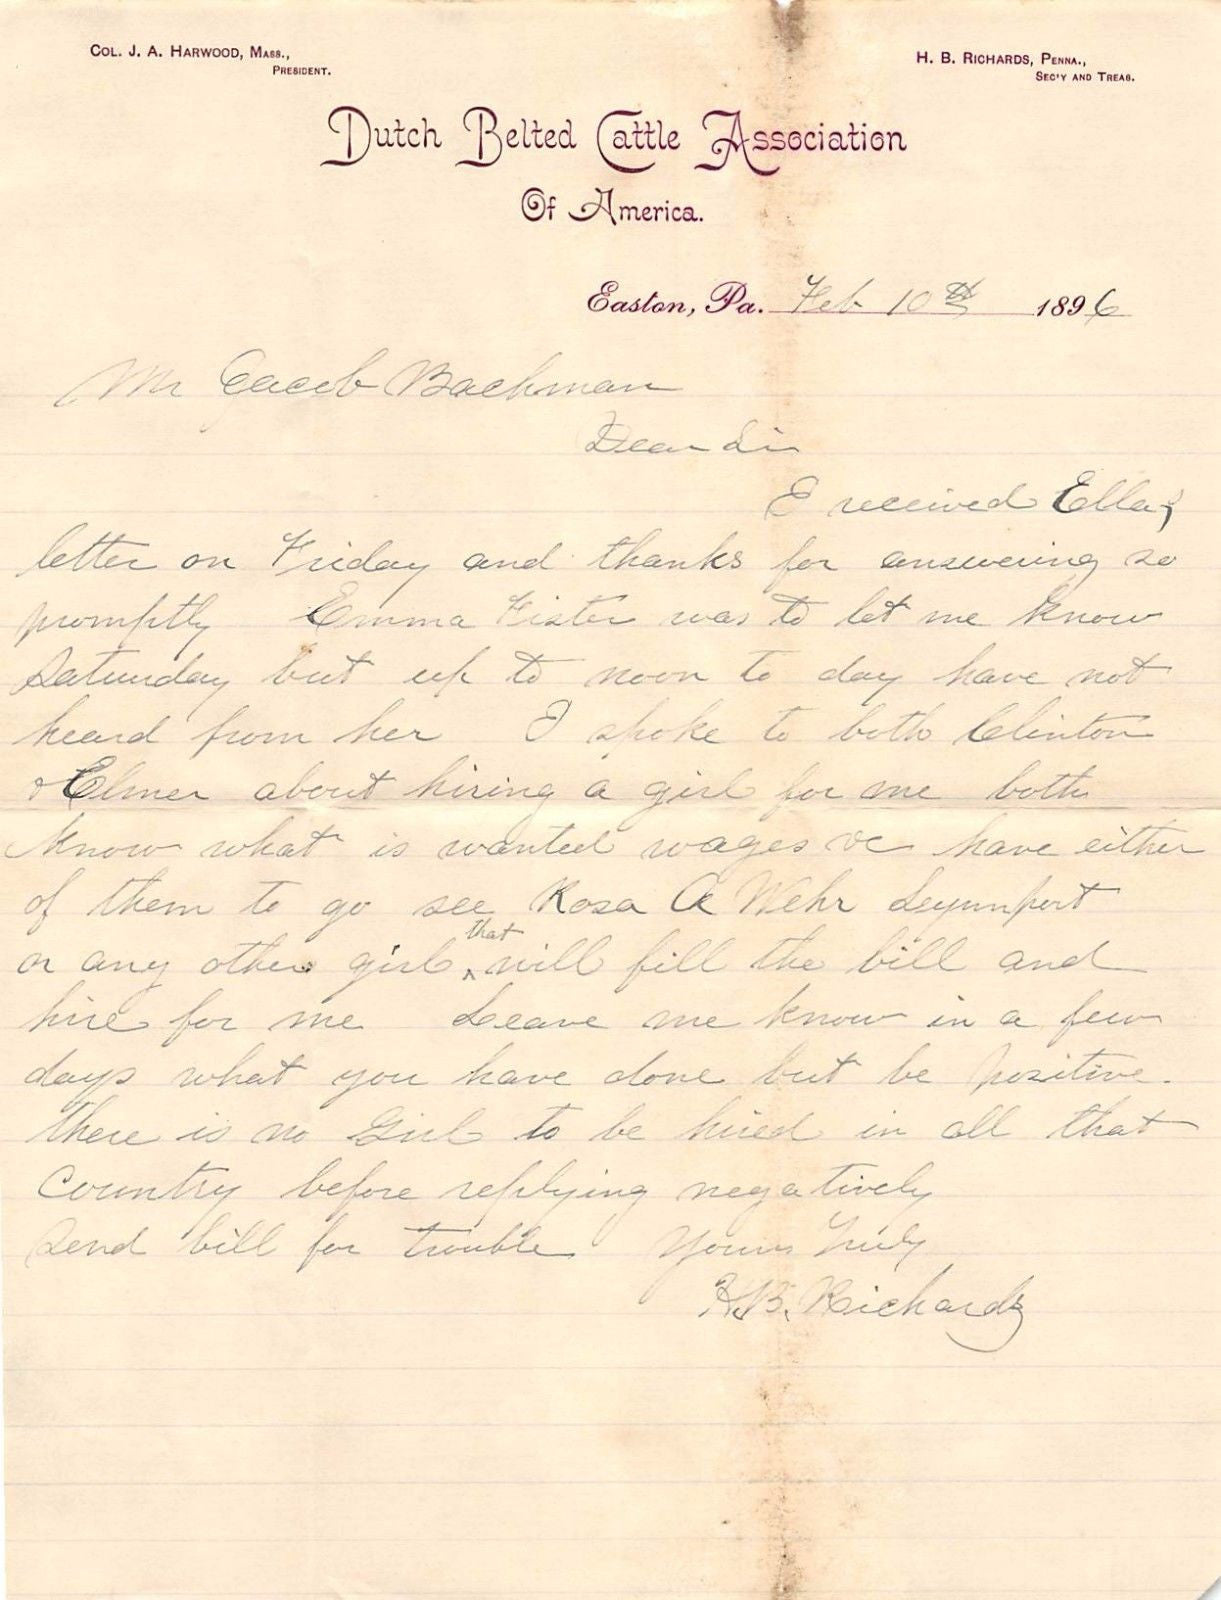 COL. J. A. HARWOOD, MASS.,
PRESIDENT.
H. B. RICHARDS, PENNA.,
SEC'Y AND TREAS.
Dutch Belted Cattle Association
Of America.
Easton, Pa. Feb 10th 1896
Mr Jacob Bachman
Dear Sir
I received Ella's
letter on Friday and thanks for answering so
promptly Emma Fister was to let me know
Saturday but up to noon to day have not
heard from her I spoke to both Clinton
& Elmer about hiring a girl for me both
know what is wanted wages &c have either
of them to go see Rosa A Wehr
or any other girl that will fill the bill and
hire for me Leave me know in a few
days what you have done but be positive.
there is no Girl to be hired in all that
Country before replying negatively
Send bill for trouble Yours Truly
H.B. Richards